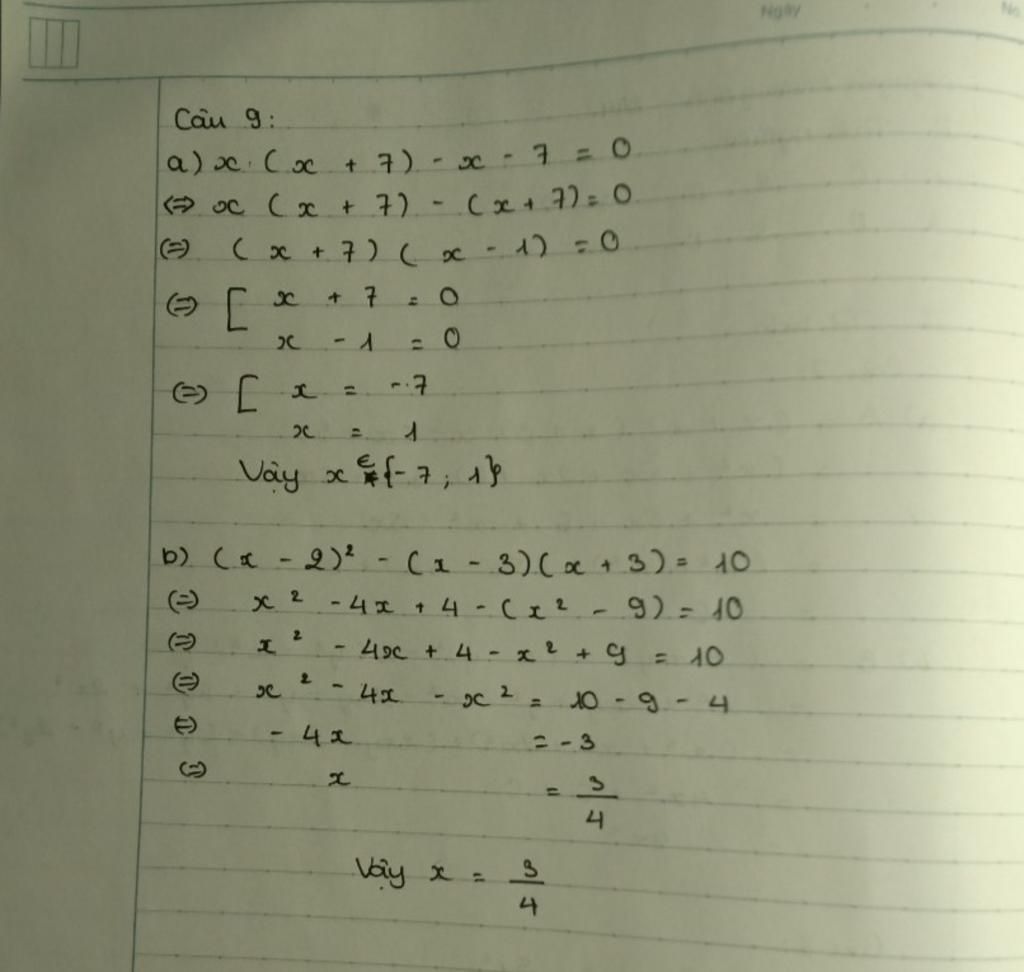 Ngày
No
Câu 9:
a) x. (x + 7) - x - 7 = 0
⇔ x (x + 7) - (x + 7) = 0
⇔ (x + 7) (x - 1) = 0
⇔ [ x + 7 = 0
x - 1 = 0
⇔ [ x = -7
x = 1
Vậy x ∈ {-7; 1}
b) (x - 2)² - (x - 3)(x + 3) = 10
⇔ x² - 4x + 4 - (x² - 9) = 10
⇔ x² - 4x + 4 - x² + 9 = 10
⇔ x² - 4x - x² = 10 - 9 - 4
⇔ - 4x = -3
⇔ x = 3/4
Vậy x = 3/4